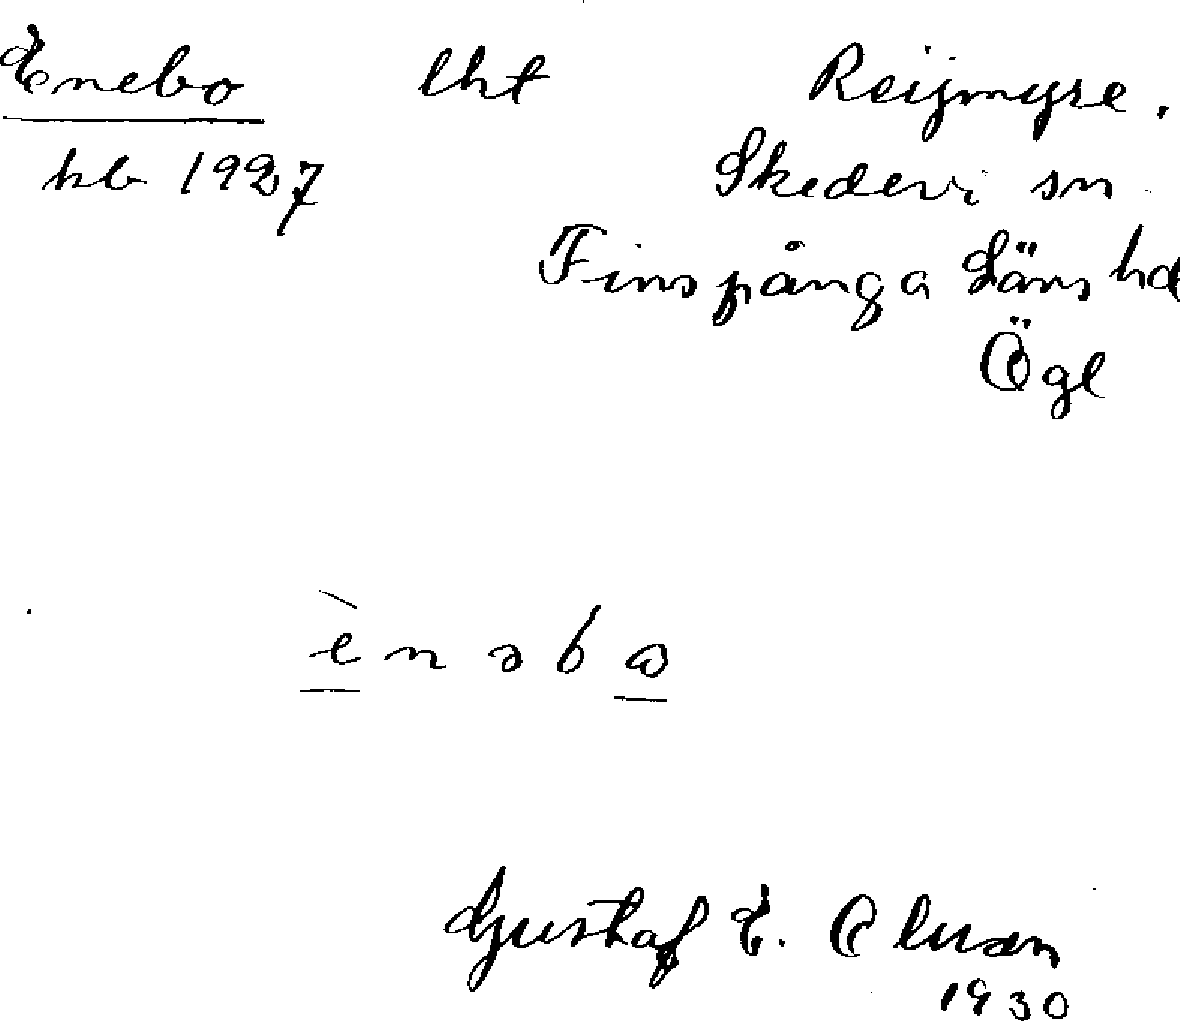 Enebo lht Reijmyre.
hb 1927 Skedevi sn
Finspånga Läns hd
Ögl
ènəbω
Gustaf E. Olson
1930